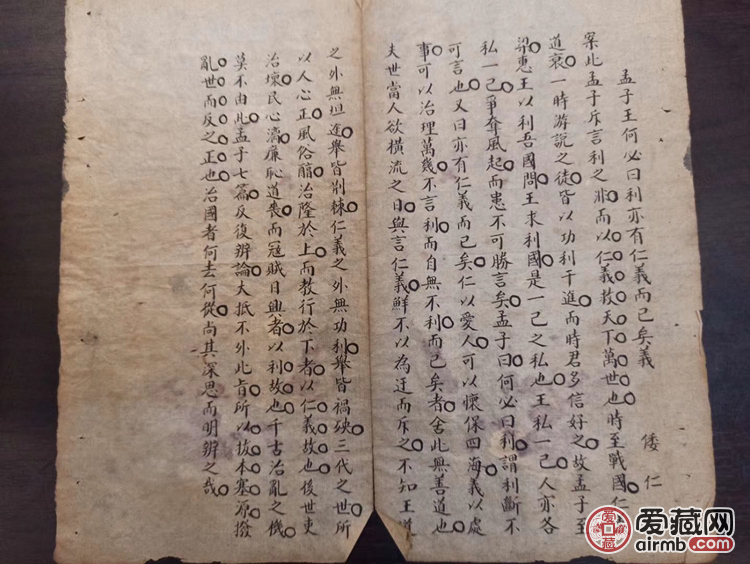 孟子王何必曰利亦有仁義而已矣義
倭仁
案此孟子斥言利之非而以仁義救天下萬世也時至戰國仁
道衰一時游說之徒皆以功利干進而時君多信好之故孟子至
梁惠王以利吾國問王求利國是一己之私也王私一己人亦各
私一己爭奪風起而患不可勝言矣孟子曰何必曰利謂利斷不
可言也又曰亦有仁義而已矣仁以愛人可以懷保四海義以處
事可以治理萬幾不言利而自無不利而已矣者舍此無善道也
夫世當人欲橫流之日與言仁義鮮不以為迂而斥之不知王道
之外無坦途舉皆荆棘仁義之外無功利舉皆禍殃三代之世所
以人心正風俗醇治隆於上而教行於下者以仁義故也後世吏
治壞民心漓廉恥道喪而寇賊日興者以利故也千古治亂之機
莫不由此孟子七篇反復辨論大抵不外此肯所以拔本塞源撥
亂世而反之正也治國者何去何從尚其深思而明辨之哉
爱藏网
airmb.com